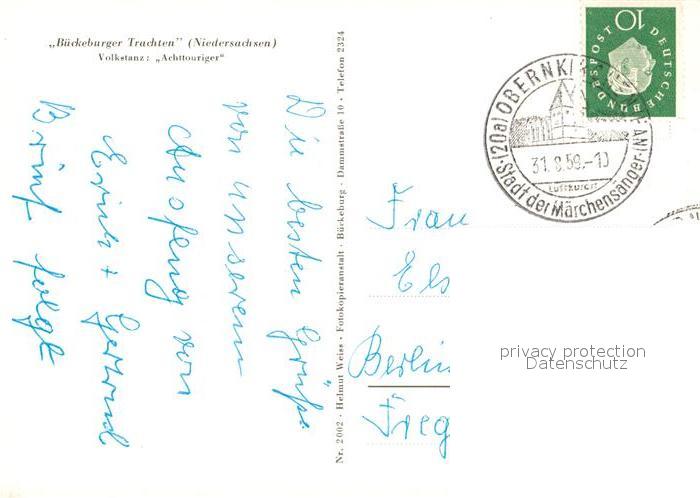 „Bückeburger Trachten” (Niedersachsen)
Volkstanz: „Achttouriger”
Die besten Grüße
von unserem
Ausflug von
Erich + Gertrud
Brief folgt
Nr. 2002 · Helmut Weiss · Fotokopieranstalt · Bückeburg · Dammstraße 10 · Telefon 2324
10
DEUTSCHE BUNDESPOST
(20a) OBERNKI
31.8.59.-10
Luftkurort
·Stadt der Märchensänger·
Frau
Els
Berlin
privacy protection
Datenschutz